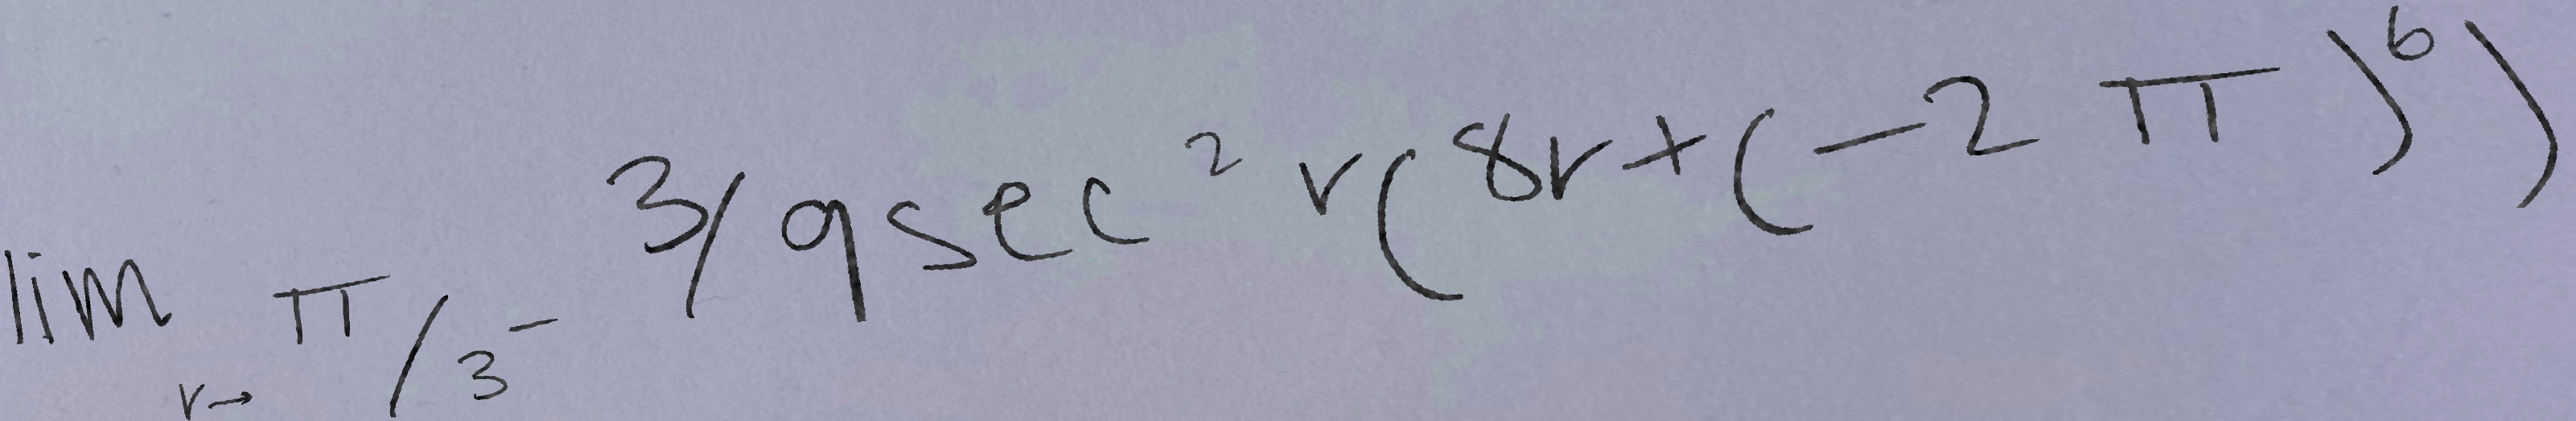 lim r→ π/3⁻ 3/9sec² r(8r+(-2π)⁶)